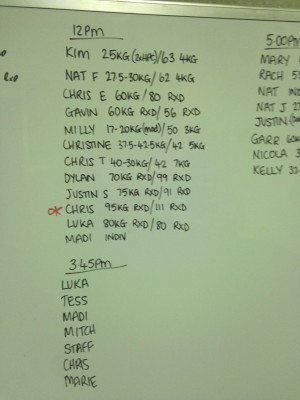 12pm
KIM 25KG (2xHPC)/63 4KG
NAT F 27.5-30KG/62 4KG
CHRIS E 60KG/80 RXD
GAVIN 60KG RXD/56 RXD
MILLY 17-20KG(mod)/50 3KG
CHRISTINE 37.5-42.5KG/42 5KG
CHRIS T 40-30KG/42 7KG
DYLAN 70KG RXD/99 RXD
JUSTIN S 75KG RXD/91 RXD
CHRIS 95KG RXD/111 RXD
LUKA 80KG RXD/80 RXD
MADI INDIV
3:45pm
LUKA
TESS
MADI
MITCH
STAFF
CHRIS
MARIE
5:00pm
MARY
RACH 55
NAT
NAT J 27
JUSTIN
GARR 60K
NICOLA 3
KELLY 32
RXD